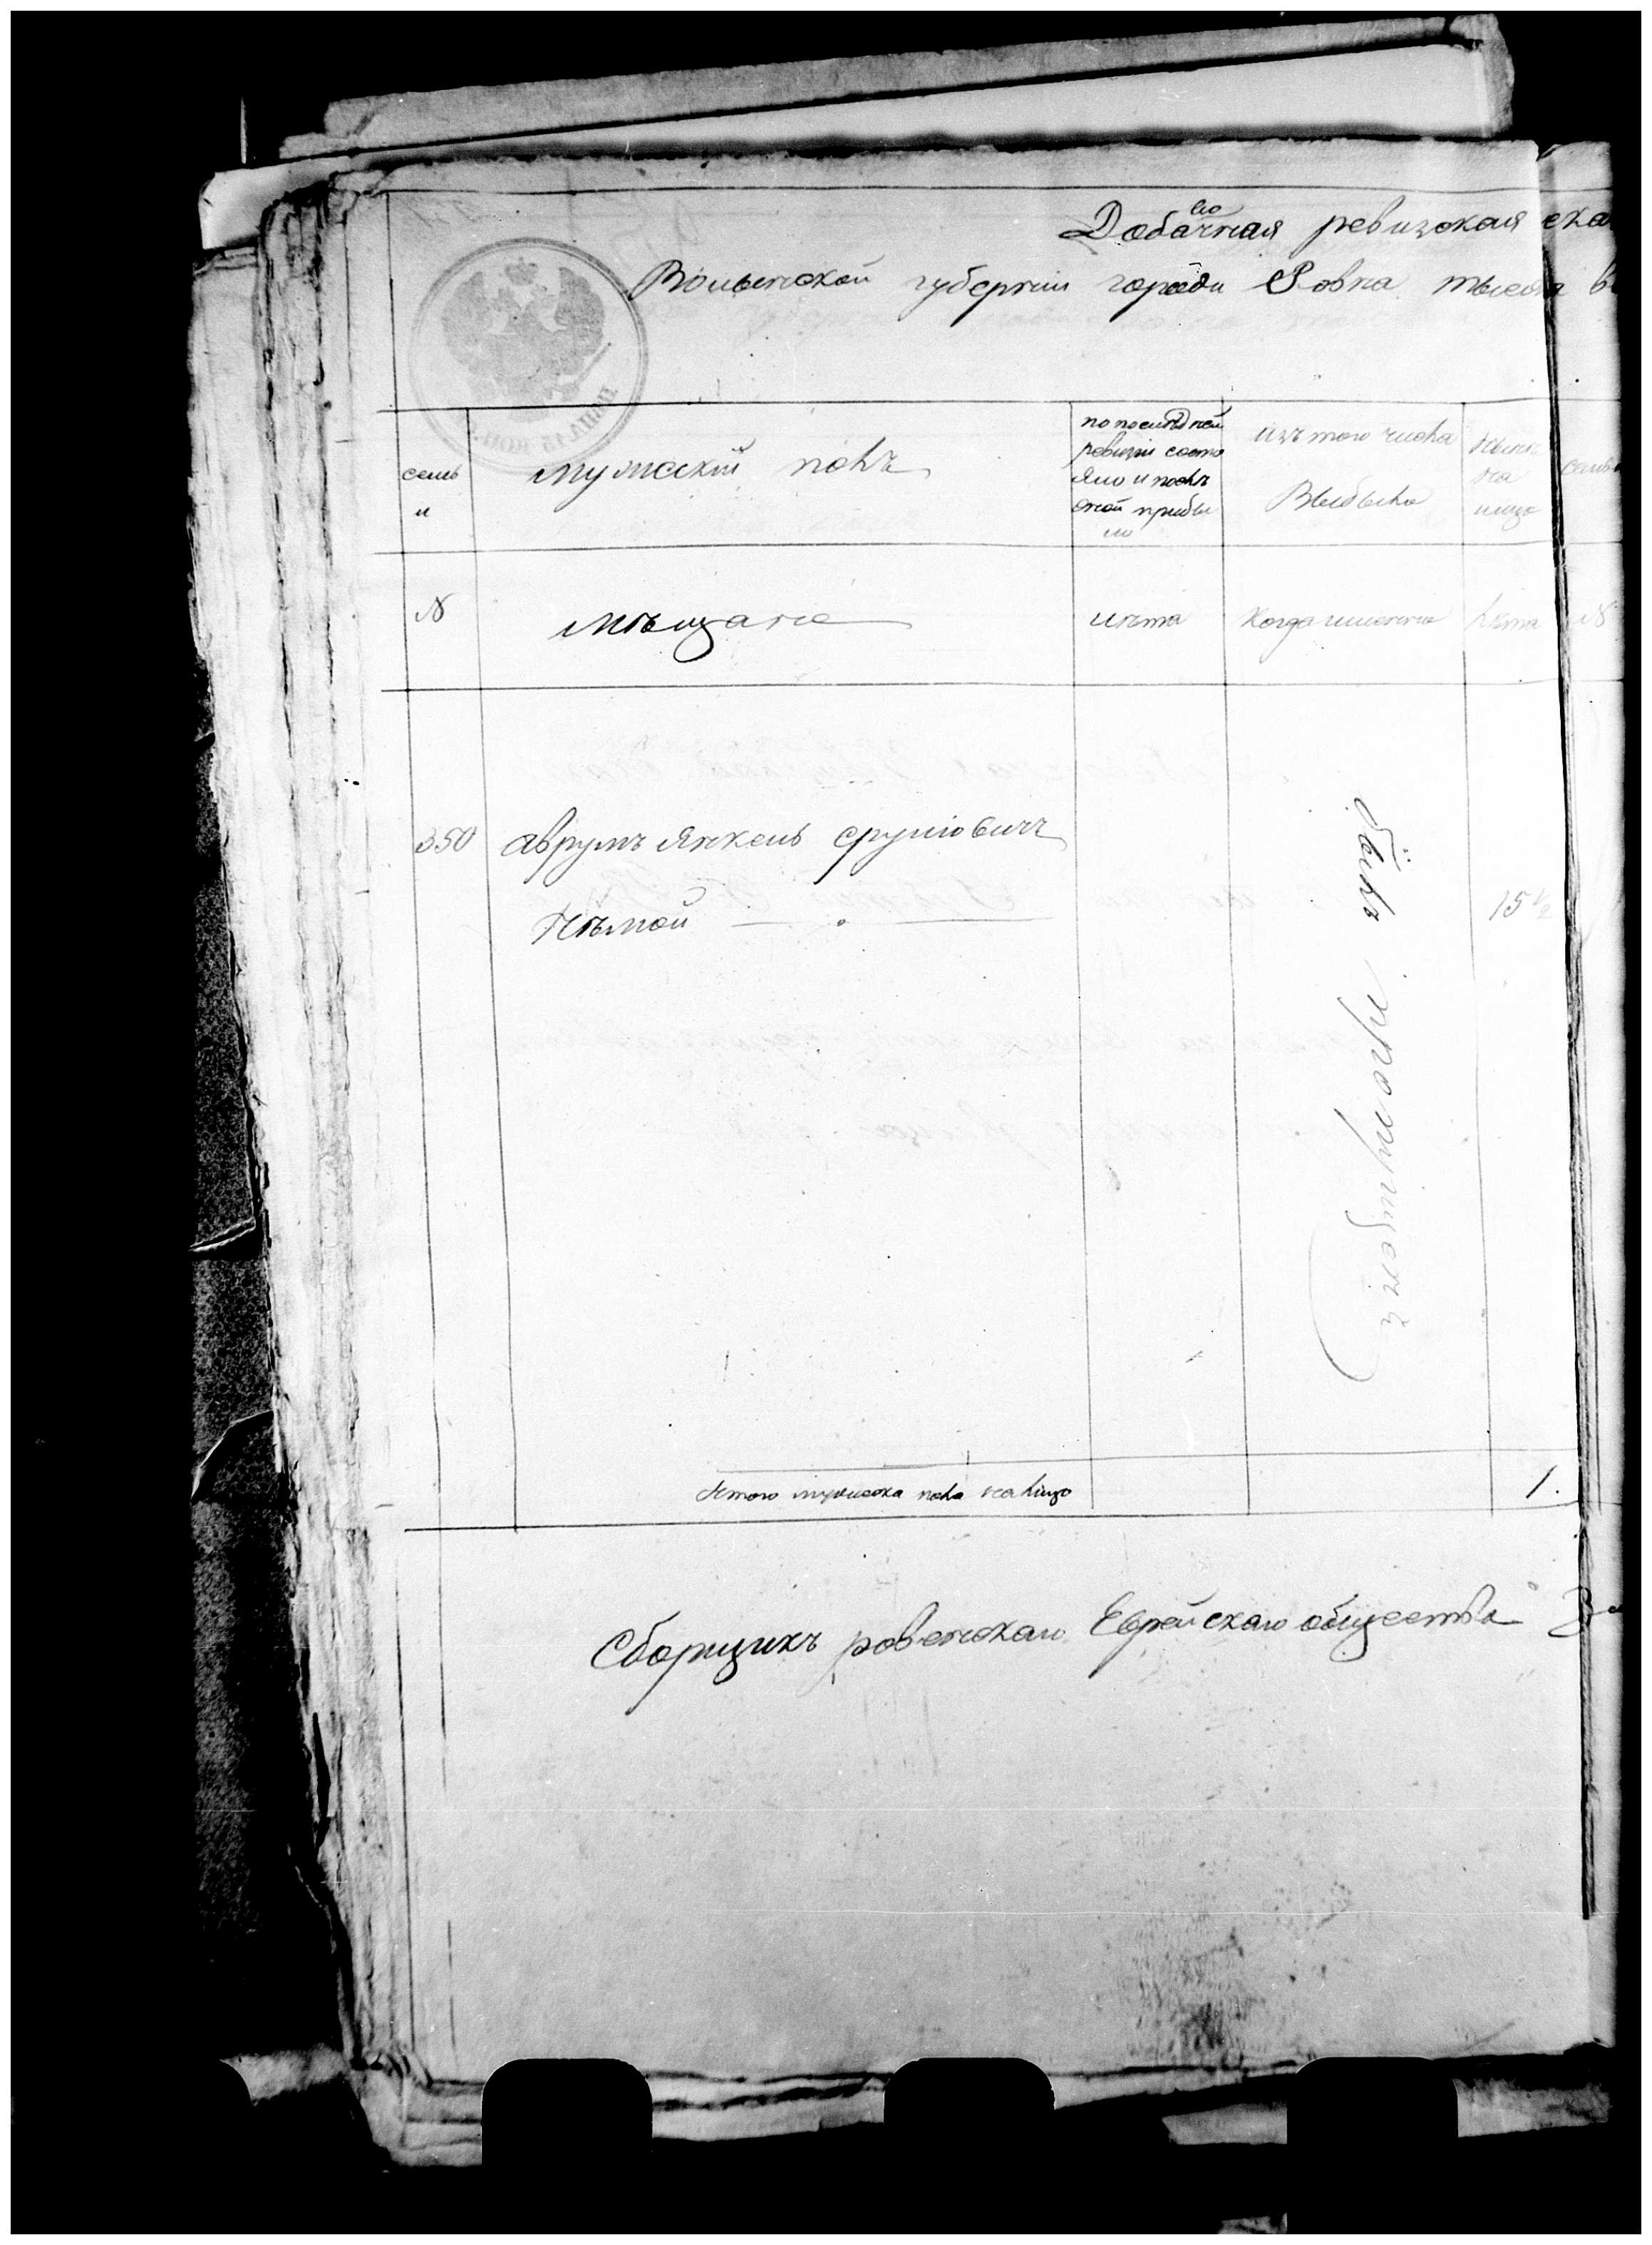 Добавочная ревизская ска
Волынской губернии города Ровна тысяча в
семьи
мужский полъ
по последней ревизіи состояло и послѣ оной прибыло
изъ того числа
Выбыло
Нынѣ на лицо
семьи
№
мѣщане
лѣта
когда именно
лѣта
№
350
Аврумъ Янкель Срулювичъ
Нѣмой
15 ½
Итого мужеска пола на лицо
1.
Сборщикъ ровенскаго Еврейскаго общества
ЦѢНА 15 КОП.